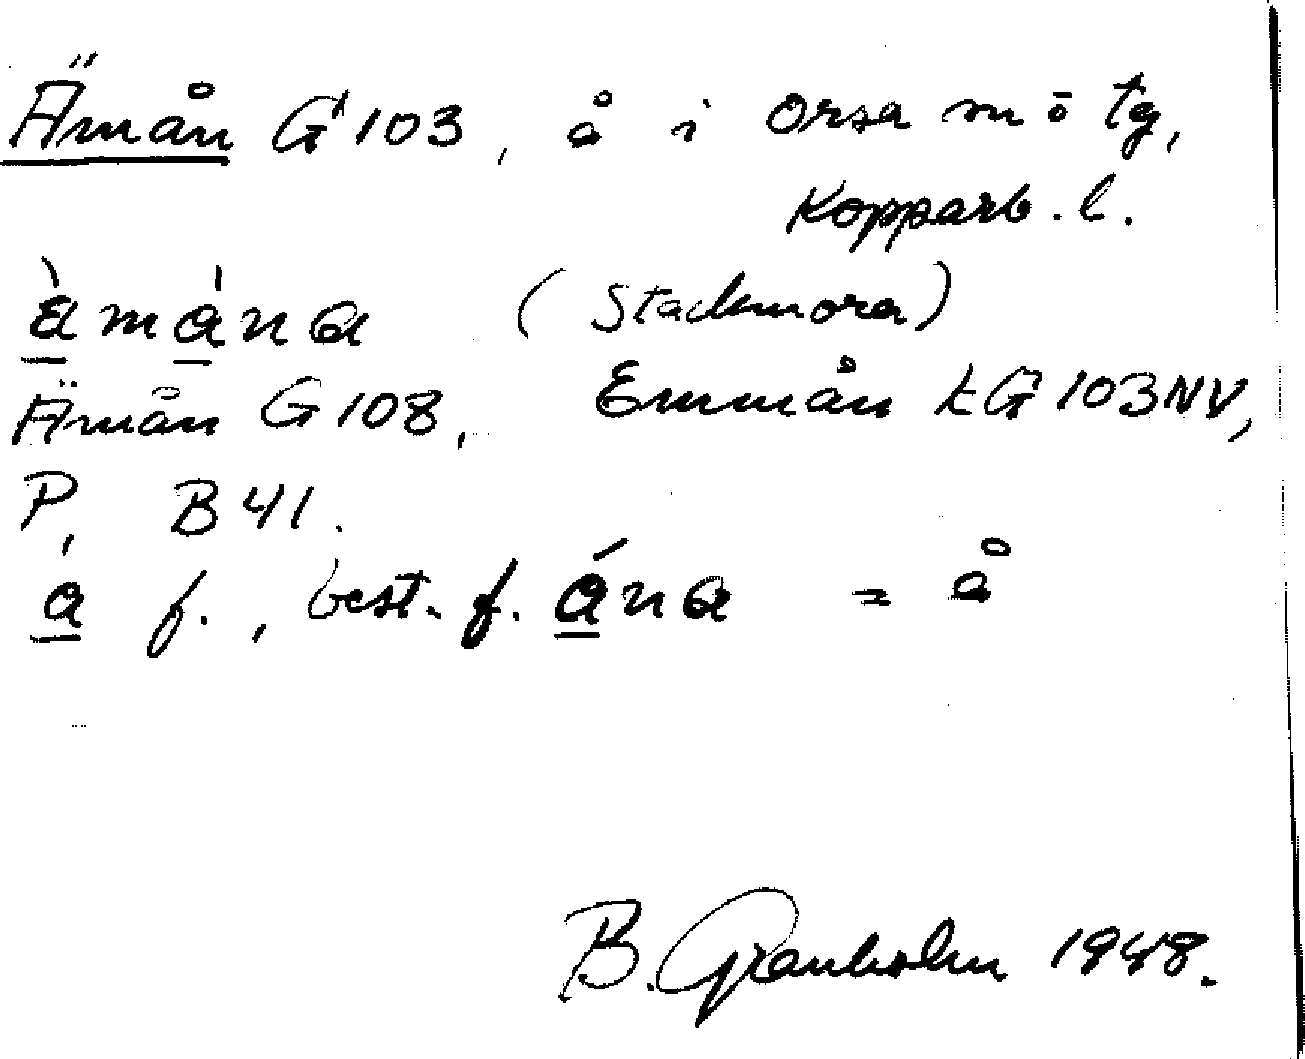 Ämån G 103, å i Orsa m ö tg,
Kopparb. l.
àmána (Stackmora)
Ämån G 108, Emmån LG 103NV,
P, B 41.
á f., best. f. ána = å
B. Granholm 1948.